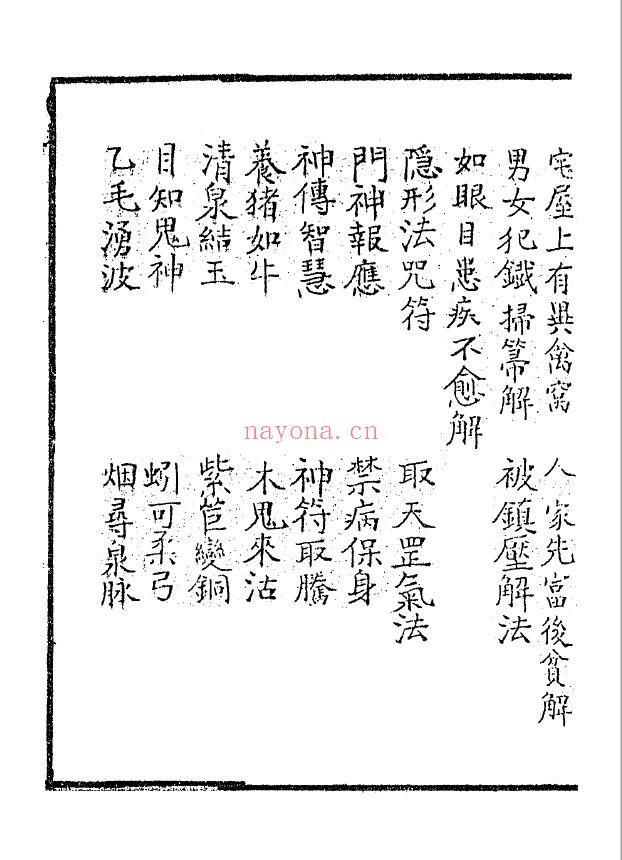 宅屋上有異禽窩 人家先富後貧解
男女犯鐵掃箒解 被鎮壓解法
如眼目患疾不愈解
隠形法咒符 取天罡氣法
門神報應 禁病保身
神傳智慧 神符取騰
養猪如牛 木鬼來沽
清泉結玉 紫笆變銅
目知鬼神 蚓可柔弓
乙毛湧波 烟尋泉脉
nayona.cn